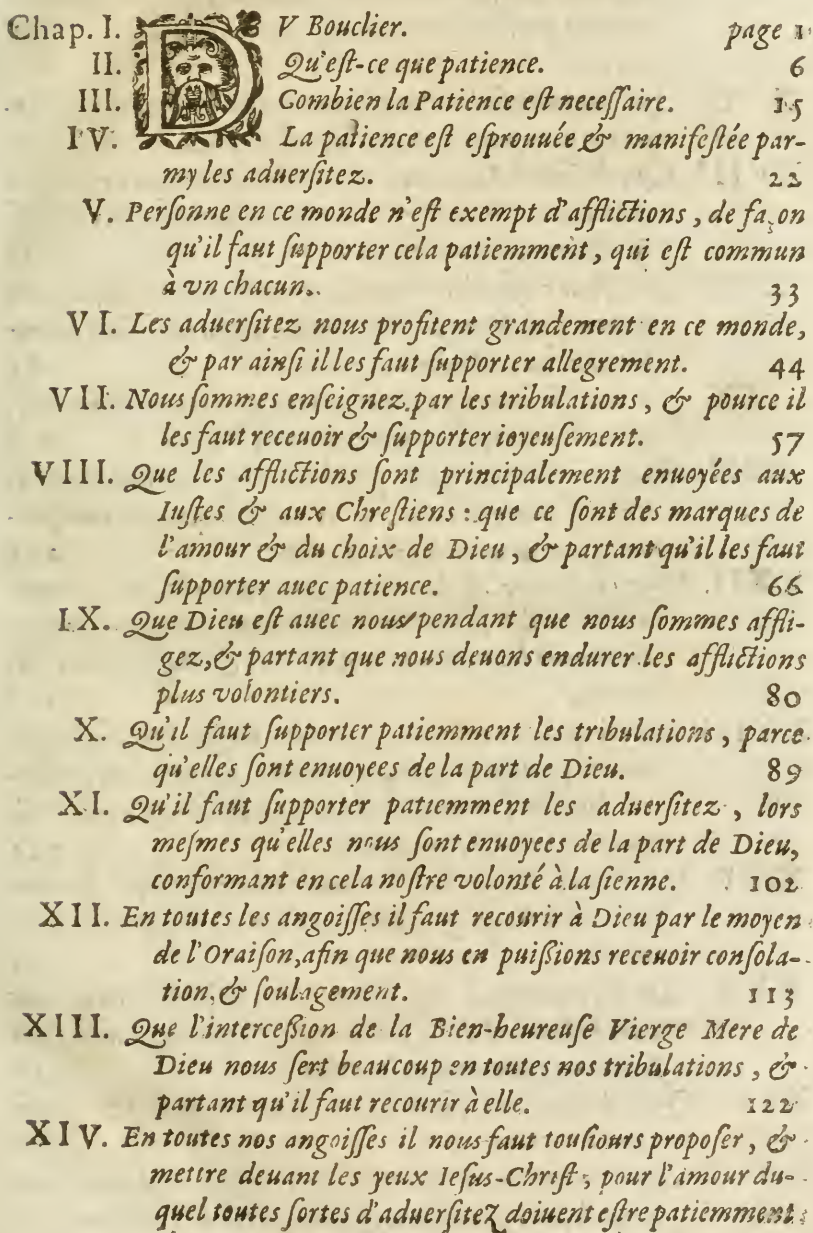 Chap. I. DV Bouclier. page 1
II. Qu'eſt-ce que patience. 6
III. Combien la Patience eſt neceſſaire. 15
IV. La patience eſt eſprouuée & manifeſtée par-
my les aduerſitez. 22
V. Perſonne en ce monde n'eſt exempt d'afflictions, de façon
qu'il faut ſupporter cela patiemment, qui eſt commun
à vn chacun. 33
VI. Les aduerſitez nous profitent grandement en ce monde,
& par ainſi il les faut ſupporter allegrement. 44
VII. Nous ſommes enſeignez par les tribulations, & pource il
les faut receuoir & ſupporter ioyeuſement. 57
VIII. Que les afflictions ſont principalement enuoyées aux
Iuſtes & aux Chreſtiens : que ce ſont des marques de
l'amour & du choix de Dieu, & partant qu'il les faut
ſupporter auec patience. 66
IX. Que Dieu eſt auec nous pendant que nous ſommes affli-
gez, & partant que nous deuons endurer les afflictions
plus volontiers. 80
X. Qu'il faut ſupporter patiemment les tribulations, parce
qu'elles ſont enuoyees de la part de Dieu. 89
XI. Qu'il faut ſupporter patiemment les aduerſitez, lors
meſmes qu'elles nous ſont enuoyees de la part de Dieu,
conformant en cela noſtre volonté à la ſienne. 102
XII. En toutes les angoiſſes il faut recourir à Dieu par le moyen
de l'Oraiſon, afin que nous en puiſſions receuoir conſola-
tion, & ſoulagement. 113
XIII. Que l'interceſſion de la Bien-heureuſe Vierge Mere de
Dieu nous ſert beaucoup en toutes nos tribulations, &
partant qu'il faut recourir à elle. 122
XIV. En toutes nos angoiſſes il nous faut touſiours propoſer, &
mettre deuant les yeux Ieſus-Chriſt, pour l'amour du-
quel toutes ſortes d'aduerſitez doiuent eſtre patiemment